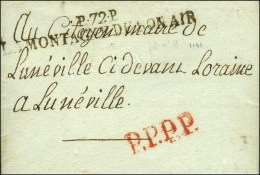 P.72.P.
MONTAGNE DU BON AIR
Au Citoyen maire de
Lunéville Ci devant Loraine
a Lunéville.
P.P.P.P.